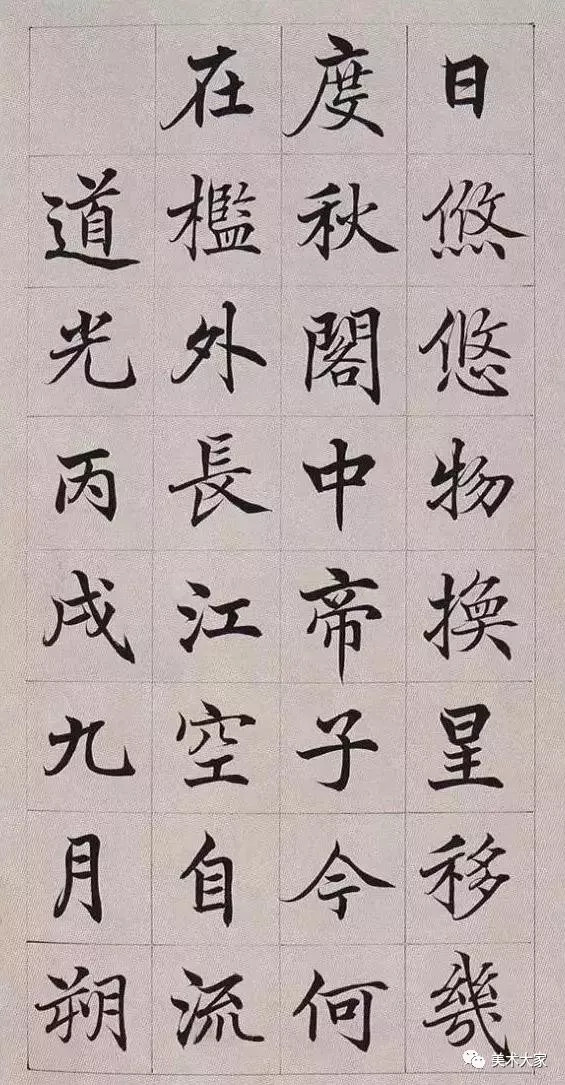 日悠悠物換星移幾
度秋閣中帝子今何
在檻外長江空自流
道光丙戌九月朔
美术大家